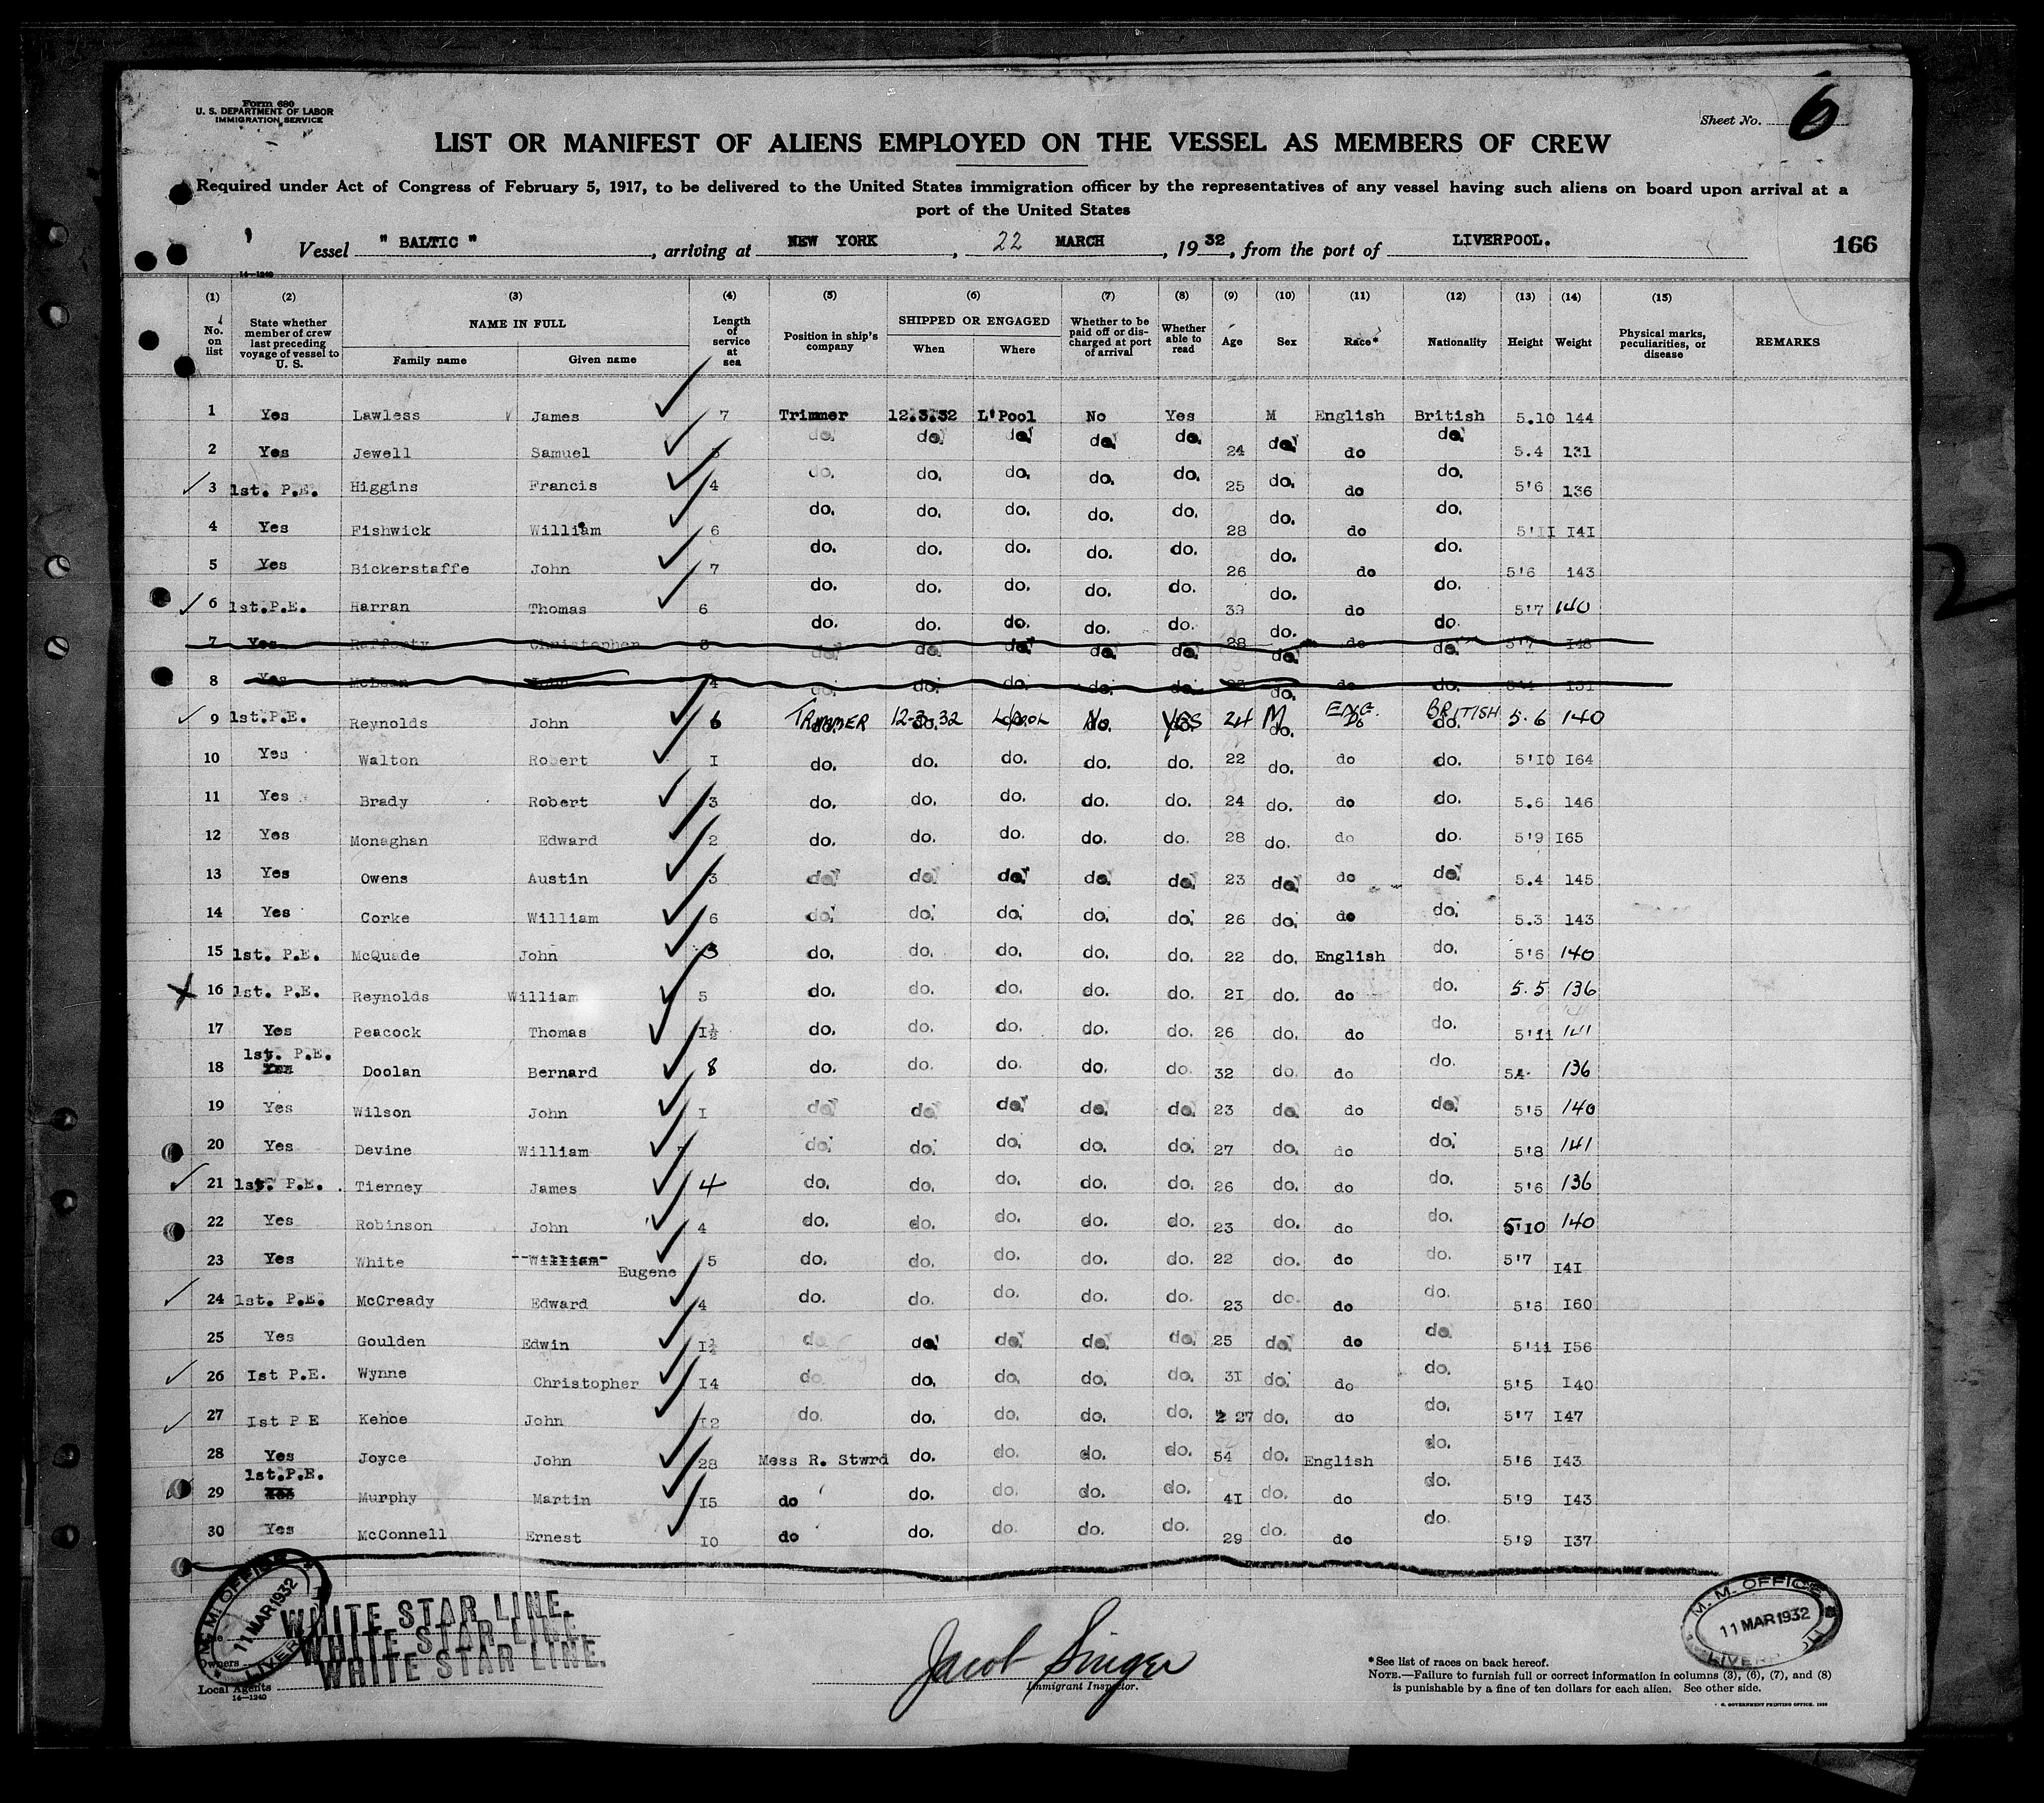 Form 680
U. S. DEPARTMENT OF LABOR
IMMIGRATION SERVICE
Sheet No. 6
LIST OR MANIFEST OF ALIENS EMPLOYED ON THE VESSEL AS MEMBERS OF CREW
Required under Act of Congress of February 5, 1917, to be delivered to the United States immigration officer by the representatives of any vessel having such aliens on board upon arrival at a
port of the United States
Vessel " BALTIC ", arriving at NEW YORK, 22 MARCH, 1932, from the port of LIVERPOOL. 166
14—1240
(1) (2) (3) (4) (5) (6) (7) (8) (9) (10) (11) (12) (13) (14) (15)
No. on list State whether member of crew last preceding voyage of vessel to U. S. NAME IN FULL Family name Given name Length of service at sea Position in ship's company SHIPPED OR ENGAGED When Where Whether to be paid off or discharged at port of arrival Whether able to read Age Sex Race* Nationality Height Weight Physical marks, peculiarities, or disease REMARKS
1 Yes Lawless James 7 Trimmer 12.3.32 L'Pool No Yes M English British 5.10 144
2 Yes Jewell Samuel do. do. do. do. do. 24 do. do do. 5.4 131
3 1st. P.E. Higgins Francis 4 do. do. do. do. do. 25 do. do do. 5'6 136
4 Yes Fishwick William 6 do. do. do. do. do. 28 do. do do. 5'II I4I
5 Yes Bickerstaffe John 7 do. do. do. do. do. 26 do. do do. 5'6 143
6 1st.P.E. Harran Thomas 6 do. do. do. do. do. 39 do. do do. 5'7 140
7 Yes Rafferty Christopher do. do. do. do. do. 28 do. do do. 5'7 148
8 Yes John 4 do. do. do. do. do. do. do do. 131
9 1st.P.E. Reynolds John 6 TRIMMER 12-3-32 L'POOL No. YES 24 M ENG. BRITISH 5.6 140
10 Yes Walton Robert I do. do. do. do. do. 22 do. do do. 5'10 164
11 Yes Brady Robert 3 do. do. do. do. do. 24 do. do do. 5.6 146
12 Yes Monaghan Edward 2 do. do. do. do. do. 28 do. do do. 5'9 I65
13 Yes Owens Austin 3 do. do. do. do. do. 23 do. do do. 5.4 145
14 Yes Corke William 6 do. do. do. do. do. 26 do. do do. 5.3 143
15 1st. P.E. McQuade John 3 do. do. do. do. do. 22 do. English do. 5'6 140
16 1st. P.E. Reynolds William 5 do. do. do. do. do. 2I do. do do. 5.5 136
17 Yes Peacock Thomas I½ do. do. do. do. do. 26 do. do do. 5'11 141
18 1st. P.E. Yes Doolan Bernard 8 do. do. do. do. do. 32 do. do do. 136
19 Yes Wilson John I do. do. do. do. do. 23 do. do do. 5'5 140
20 Yes Devine William 7 do. do. do. do. do. 27 do. do do. 5'8 141
21 1st. P.E. Tierney James 4 do. do. do. do. do. 26 do. do do. 5'6 136
22 Yes Robinson John 4 do. do. do. do. do. 23 do. do do. 5'10 140
23 Yes White William Eugene 5 do. do. do. do. do. 22 do. do do. 5'7 I4I
24 1st. P.E. McCready Edward 4 do. do. do. do. do. 23 do. do do. 5'6 I60
25 Yes Goulden Edwin do. do. do. do. do. 25 do. do do. 5'11 I56
26 Ist P.E. Wynne Christopher I4 do. do. do. do. do. 3I do. do do. 5'5 I40
27 Ist P E Kehoe John I2 do. do. do. do. do. 27 do. do do. 5'7 I47
28 Yes Joyce John 28 Mess R. Stwrd do. do. do. do. 54 do. English do. 5'6 I43
29 1st.P.E. Yes Murphy Martin I5 do do. do. do. do. 4I do. do do. 5'9 I43
30 Yes McConnell Ernest I0 do do. do. do. do. 29 do. do do. 5'9 I37
M. M. OFFICE 11 MAR 1932 LIVERPOOL
WHITE STAR LINE.
WHITE STAR LINE.
WHITE STAR LINE.
Owners
Local Agents
14—1240
Jacob Singer
Immigrant Inspector.
M. M. OFFICE 11 MAR 1932 LIVERPOOL
*See list of races on back hereof.
NOTE.—Failure to furnish full or correct information in columns (3), (6), (7), and (8)
is punishable by a fine of ten dollars for each alien. See other side.
GOVERNMENT PRINTING OFFICE
2